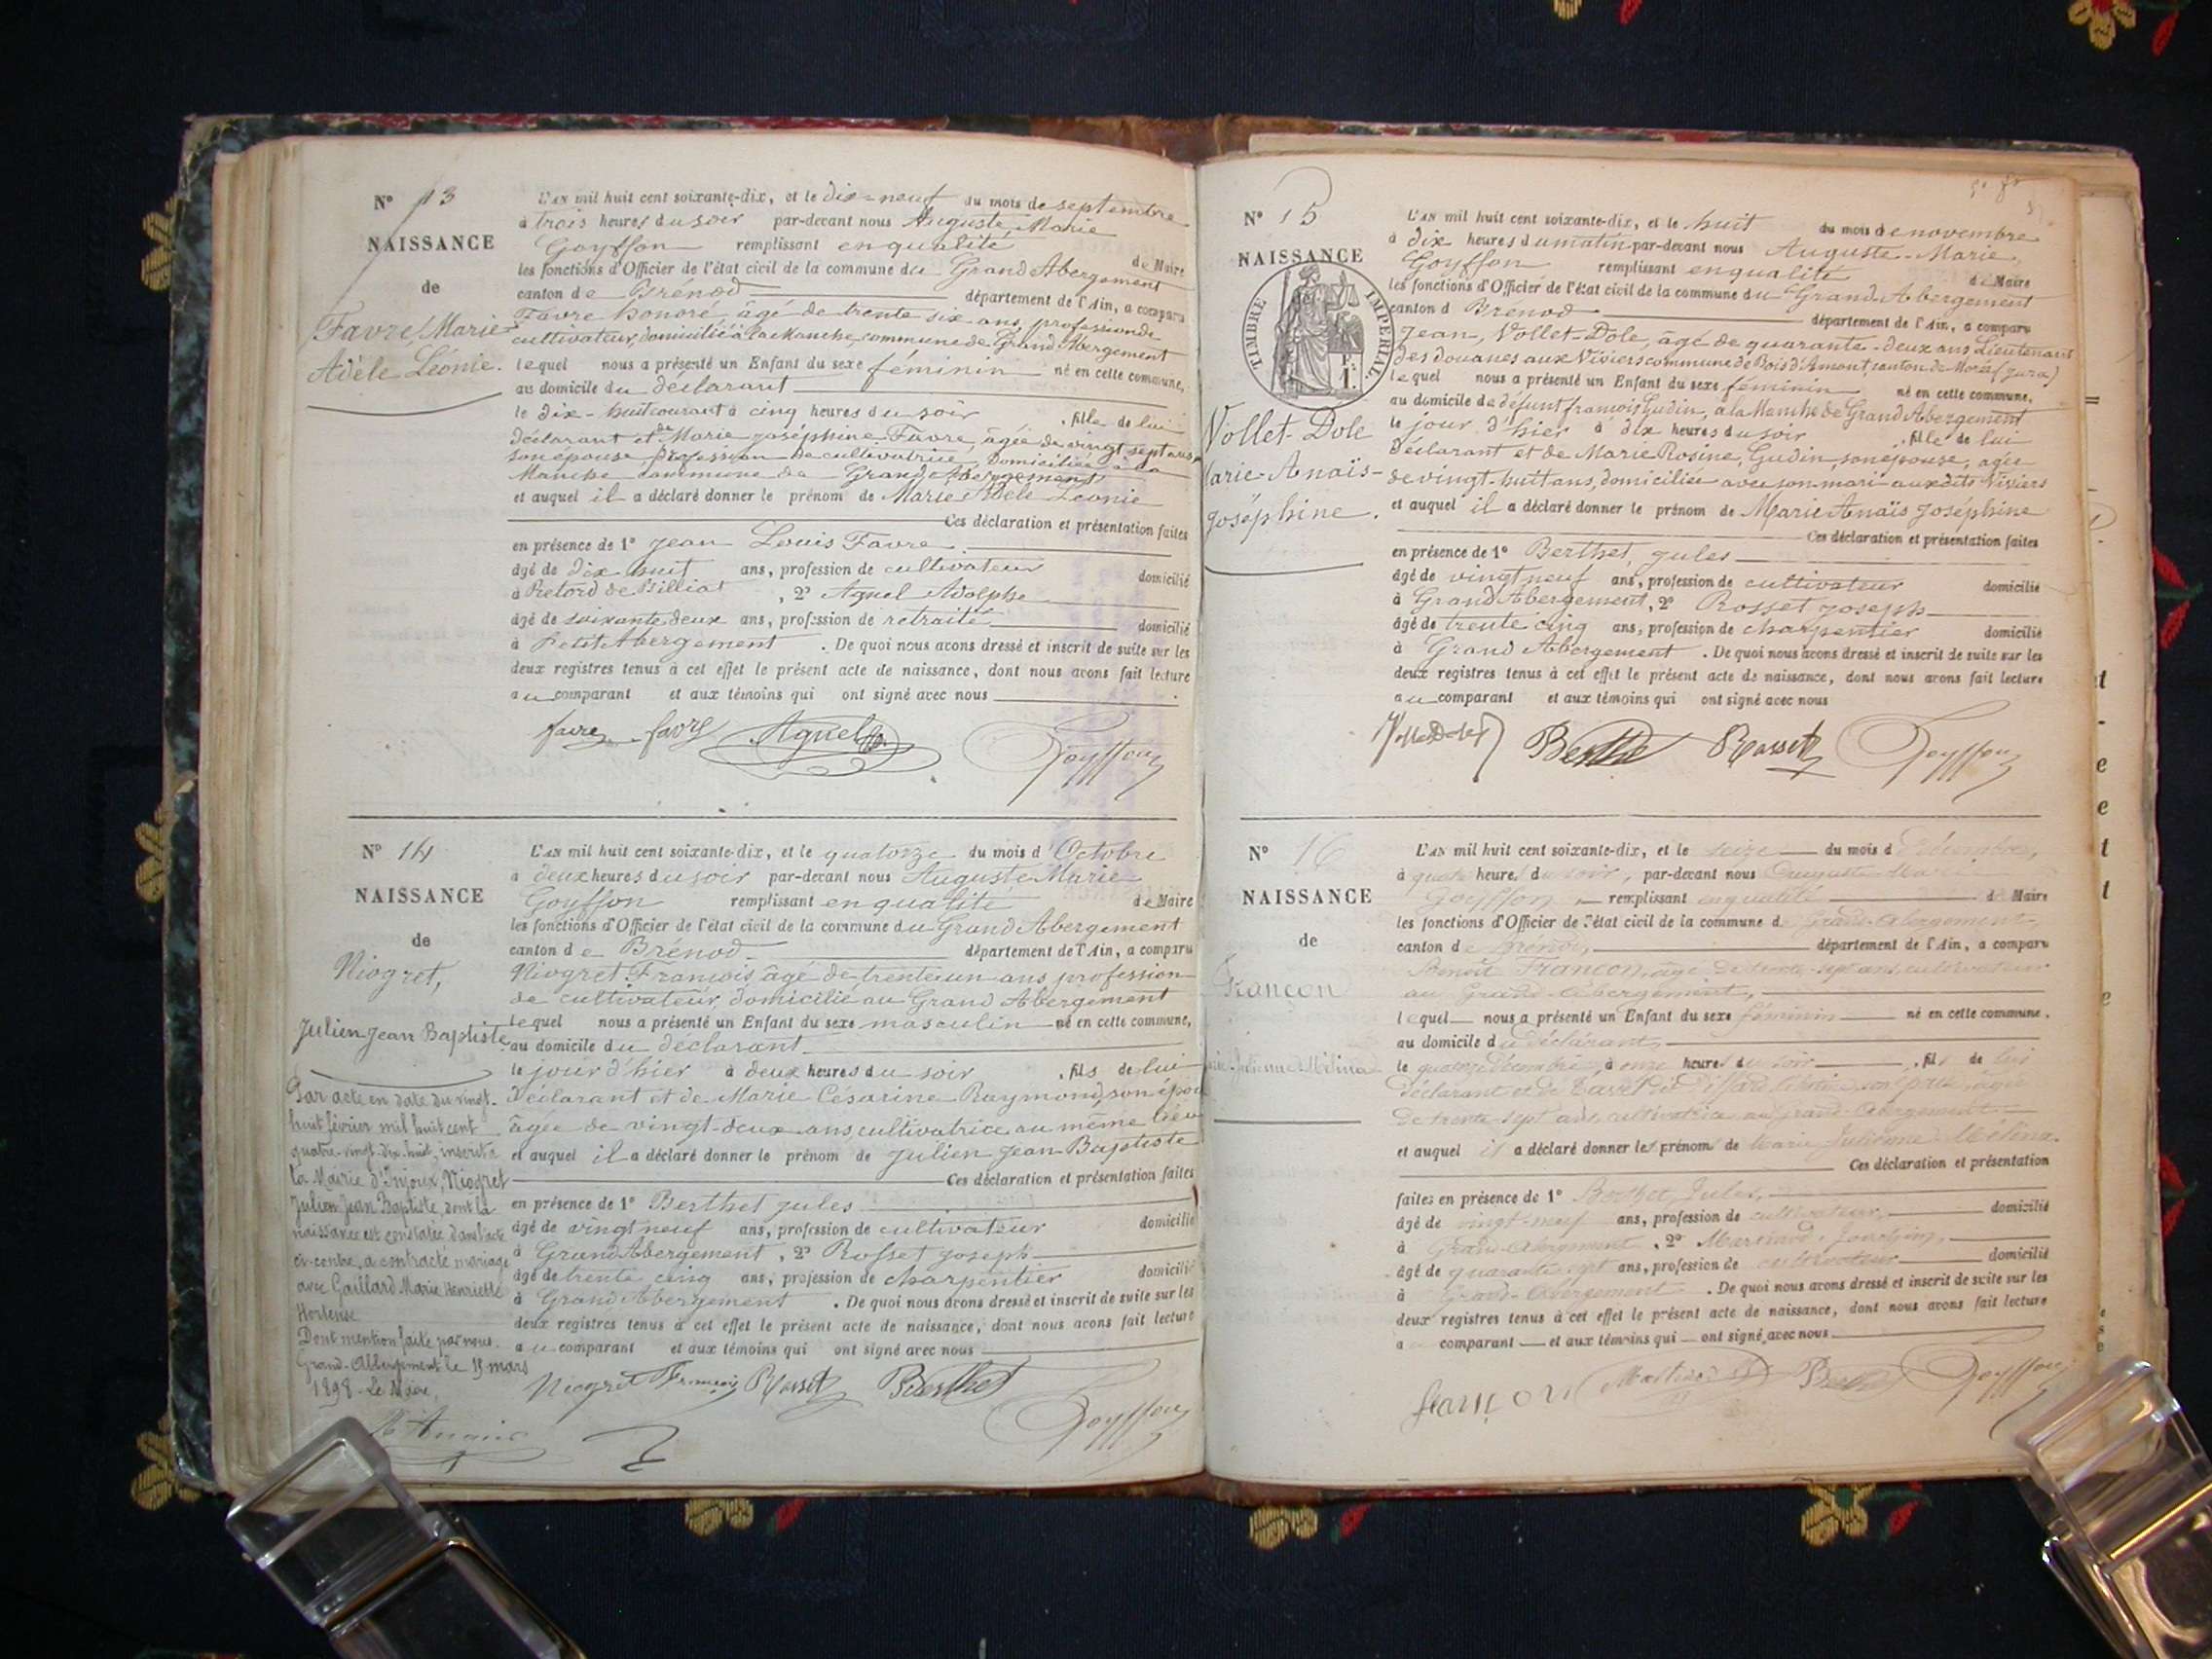 N° 13
NAISSANCE
de
Favre, Marie
Adèle Léonie.
L'AN mil huit cent soixante-dix, et le dix-neuf du mois de septembre
à trois heures du soir par-devant nous Auguste Marie
Goyffon remplissant en qualité de Maire
les fonctions d'Officier de l'état civil de la commune du Grand Abergement
canton de Brénod département de l'Ain, a comparu
Favre honoré, âgé de trente six ans, profession de
cultivateur, domicilié à la Manche, commune de Grand Abergement
lequel nous a présenté un Enfant du sexe féminin né en cette commune,
au domicile du déclarant
le dix-huit courant à cinq heures du soir , fille de lui
déclarant et de Marie joséphine Favre, âgée de vingt sept ans
son épouse, profession de cultivatrice, domiciliée à la
Manche commune de Grand Abergement
et auquel il a déclaré donner le prénom de Marie Adèle Léonie
Ces déclaration et présentation faites
en présence de 1° jean Louis Favre
âgé de dix huit ans, profession de cultivateur domicilié
à Retord de Billiat , 2° Agnel Adolphe
âgé de soixante deux ans, profession de retraité domicilié
à Petit Abergement . De quoi nous avons dressé et inscrit de suite sur les
deux registres tenus à cet effet le présent acte de naissance, dont nous avons fait lecture
au comparant et aux témoins qui ont signé avec nous
favre favre Agnel Goyffon
N° 14
NAISSANCE
de
Niogret,
Julien Jean Baptiste
L'AN mil huit cent soixante-dix, et le quatorze du mois d'Octobre
à deux heures du soir par-devant nous Auguste Marie
Goyffon remplissant en qualité de Maire
les fonctions d'Officier de l'état civil de la commune du Grand Abergement
canton de Brénod département de l'Ain, a comparu
Niogret François, âgé de trente un ans, profession
de cultivateur, domicilié au Grand Abergement
lequel nous a présenté un Enfant du sexe masculin né en cette commune,
au domicile du déclarant
le jour d'hier à deux heures du soir , fils de lui
déclarant et de Marie Césarine Raymond, son épou
âgée de vingt-deux ans, cultivatrice au même lieu
et auquel il a déclaré donner le prénom de Julien Jean Baptiste
Ces déclaration et présentation faites
en présence de 1° Berthet jules
âgé de vingt neuf ans, profession de cultivateur domicilié
à Grand Abergement , 2° Rosset joseph
âgé de trente cinq ans, profession de charpentier domicilié
à Grand Abergement . De quoi nous avons dressé et inscrit de suite sur les
deux registres tenus à cet effet le présent acte de naissance, dont nous avons fait lecture
au comparant et aux témoins qui ont signé avec nous
Niogret François Rosset Berthet
Goyffon
Par acte en date du vingt-
huit février mil huit cent
quatre-vingt-dix-huit, inscrit à
la Mairie d'Injoux, Niogret
Julien Jean Baptiste, dont la
naissance est constatée dans l'acte
ci-contre, a contracté mariage
avec Gaillard Marie Henriette
Hortense
Dont mention faite par nous
Grand-Abergement le 15 mars
1898 Le Maire,
N° 15
NAISSANCE
TIMBRE IMPERIAL
Vollet-Dole
Marie-Anaïs-
Joséphine.
L'AN mil huit cent soixante-dix, et le huit du mois de novembre
à dix heures du matin par-devant nous Auguste-Marie
Goyffon remplissant en qualité de Maire
les fonctions d'Officier de l'état civil de la commune du Grand Abergement
canton d Brénod département de l'Ain, a comparu
Jean, Vollet-Dole, âgé de quarante-deux ans Lieutenant
des douanes aux Viviers commune de Bois d'Amont, canton de Morez (jura)
lequel nous a présenté un Enfant du sexe féminin né en cette commune,
au domicile de défunt françois Gudin, à la Manche de Grand Abergement
le jour d'hier à dix heures du soir , fille de lui
déclarant et de Marie Rosine, Gudin, son épouse, âgée
de vingt-huit ans, domiciliée avec son mari aux dits Viviers
et auquel il a déclaré donner le prénom de Marie Anaïs Joséphine
Ces déclaration et présentation faites
en présence de 1° Berthet, jules
âgé de vingt neuf ans, profession de cultivateur domicilié
à Grand Abergement, 2° Rosset joseph
âgé de trente cinq ans, profession de charpentier domicilié
à Grand Abergement . De quoi nous avons dressé et inscrit de suite sur les
deux registres tenus à cet effet le présent acte de naissance, dont nous avons fait lecture
au comparant et aux témoins qui ont signé avec nous
Berthet Rosset Goyffon
N° 16
NAISSANCE
de
Françon
Julienne Mélina
L'AN mil huit cent soixante-dix, et le seize du mois d Décembre,
à quatre heures du soir, par-devant nous Auguste Marie
Goyffon remplissant en qualité de Maire
les fonctions d'Officier de l'état civil de la commune d Grand-Abergement
canton de Brénod, département de l'Ain, a comparu
Benoît Françon, âgé de trente-sept ans, cultivateur
au Grand-Abergement,
lequel nous a présenté un Enfant du sexe féminin né en cette commune.
au domicile du déclarant,
le quatorze Décembre, à onze heures du soir , fil de lui
déclarant et de
de trente-sept ans, cultivatrice au grand-Abergement
et auquel il a déclaré donner les prénoms de Marie Julienne Mélina.
Ces déclaration et présentation
faites en présence de 1° Berthet, Jules,
âgé de vingt-neuf ans, profession de cultivateur, domicilié
à Grand-Abergement , 2°
âgé de quarante-sept ans, profession de cultivateur domicilié
à Grand-Abergement . De quoi nous avons dressé et inscrit de suite sur les
deux registres tenus à cet effet le présent acte de naissance, dont nous avons fait lecture
a comparant et aux témoins qui ont signé avec nous
françon Goyffon